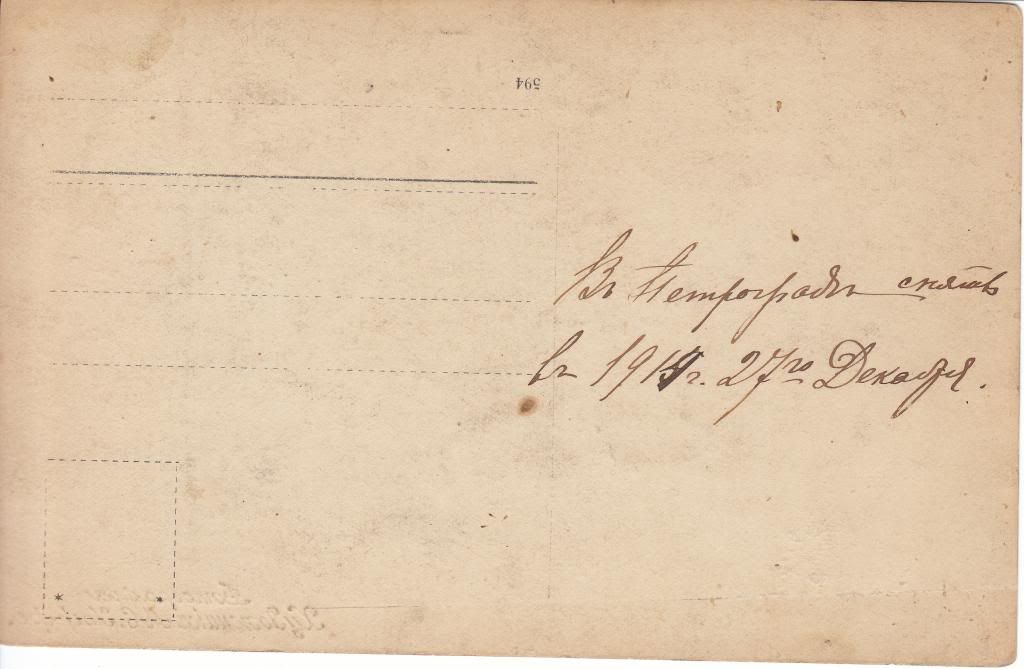 594
Въ Петроградъ снятъ
въ 1914г. 27го Декабря.